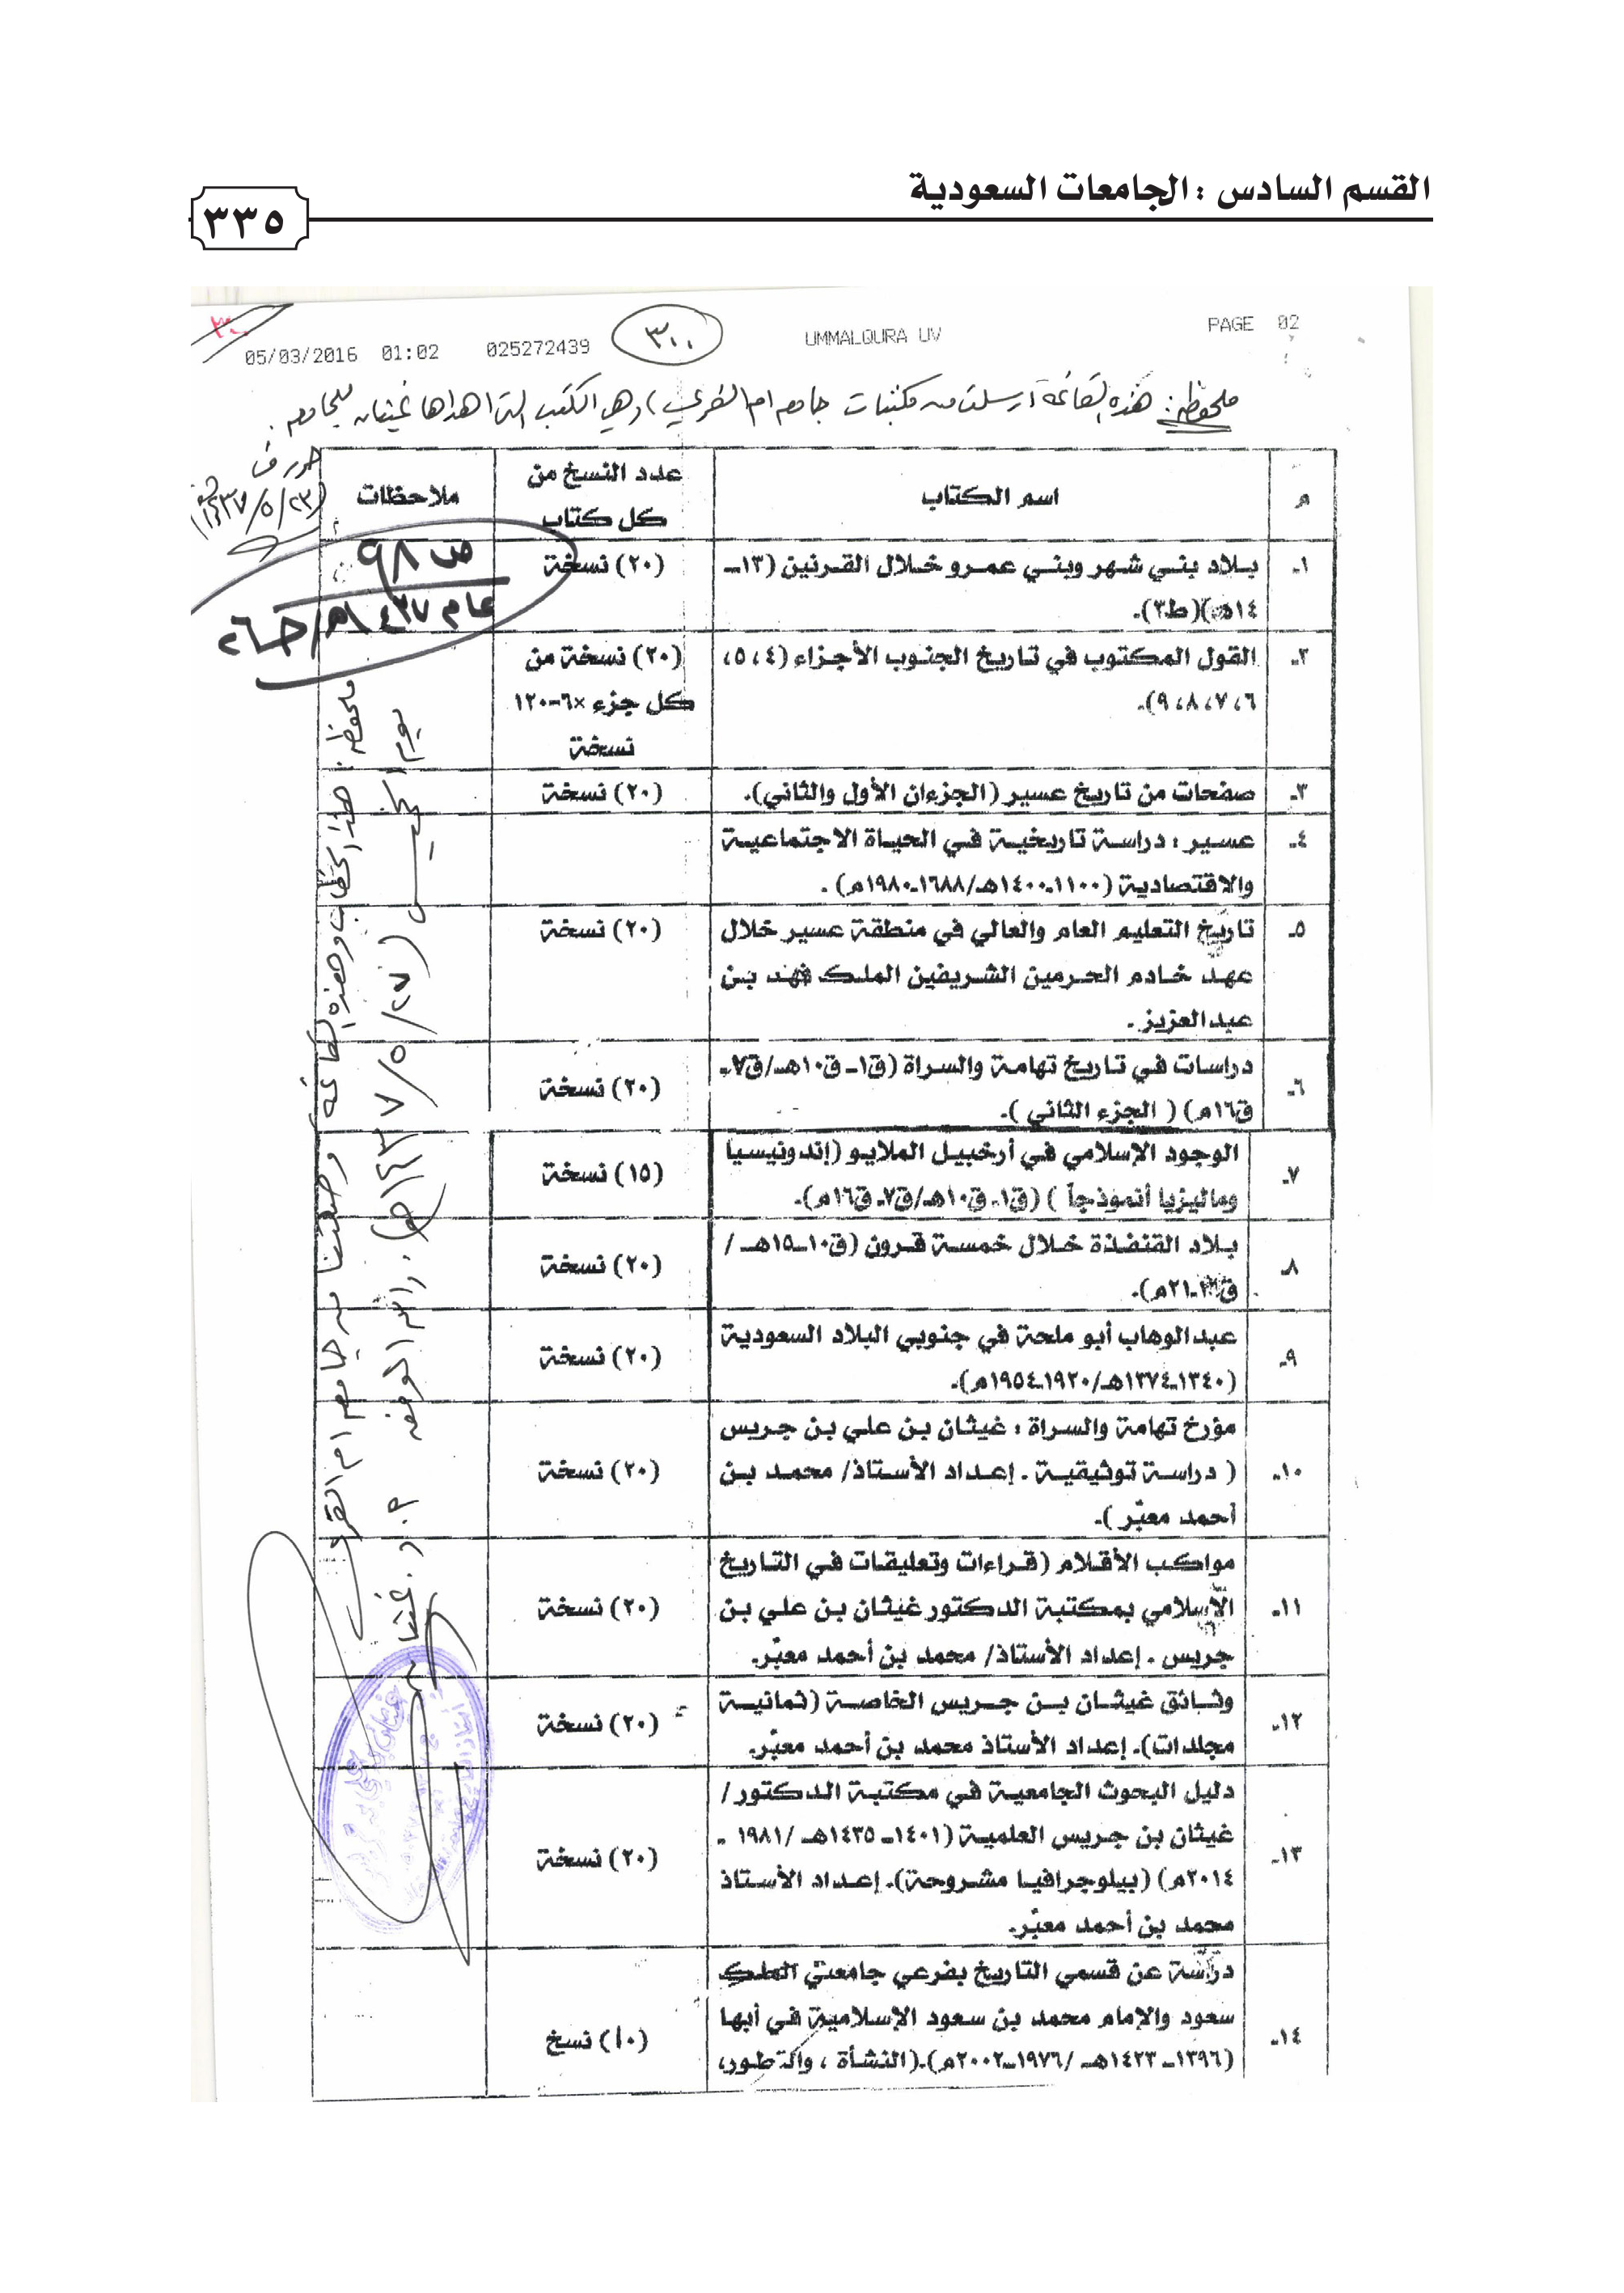 القسم السادس : الجامعات السعودية
٣٣٥
05/03/2016 01:02 025272439 ٣٠٠ UMMALQURA UV PAGE 02
ملحوظة: هذه القائمة أرسلت من مكتبات جامعة أم القرى) وهي الكتب التي أهداها غيثان للجامعة.
م اسم الكتاب عدد النسخ من كل كتاب ملاحظات
ص ٩٨
عام ١٤٣٧هـ/ حـ٢٦
١- بلاد بني شهر وبني عمرو خلال القرنين (١٣- (٢٠) نسخة
١٤هـ)(ط٣).
٢- القول المكتوب في تاريخ الجنوب الأجزاء (٤، ٥، (٢٠) نسخة من
٦، ٧، ٨، ٩). كل جزء ×٦-١٢٠
نسخة
٣- صفحات من تاريخ عسير (الجزءان الأول والثاني). (٢٠) نسخة
٤- عسير : دراسة تاريخية في الحياة الاجتماعية
والاقتصادية (١١٠٠-١٤٠٠هـ/١٦٨٨-١٩٨٠م) .
٥- تاريخ التعليم العام والعالي في منطقة عسير خلال (٢٠) نسخة
عهد خادم الحرمين الشريفين الملك فهد بن
عبدالعزيز .
٦- دراسات في تاريخ تهامة والسراة (ق١- ق١٠هـ/ق٧- (٢٠) نسخة
ق١٦م) ( الجزء الثاني ).
٧- الوجود الإسلامي في أرخبيل الملايو (إندونيسيا (١٥) نسخة
وماليزيا أنموذجاً ) (ق١- ق١٠هـ/ق٧- ق١٦م).
٨- بلاد القنفذة خلال خمسة قرون (ق١٠-١٥هـ / (٢٠) نسخة
٢١م).
٩- عبدالوهاب أبو ملحة في جنوبي البلاد السعودية (٢٠) نسخة
(١٣٤٠-١٣٧٤هـ/١٩٢٠-١٩٥٤م).
١٠- مؤرخ تهامة والسراة : غيثان بن علي بن جريس (٢٠) نسخة
( دراسة توثيقية . إعداد الأستاذ/ محمد بن
أحمد معبّر ).
١١- مواكب الأقلام (قراءات وتعليقات في التاريخ (٢٠) نسخة
الإسلامي بمكتبة الدكتور غيثان بن علي بن
جريس . إعداد الأستاذ/ محمد بن أحمد معبّر.
١٢- وثائق غيثان بن جريس الخاصة (ثمانية (٢٠) نسخة
مجلدات). إعداد الأستاذ محمد بن أحمد معبّر.
١٣- دليل البحوث الجامعية في مكتبة الدكتور / (٢٠) نسخة
غيثان بن جريس العلمية (١٤٠١- ١٤٣٥هـ /١٩٨١ -
٢٠١٤م) (بيلوجرافيا مشروحة). إعداد الأستاذ
محمد بن أحمد معبّر.
١٤- دراسة عن قسمي التاريخ بفرعي جامعتي الملك (١٠) نسخ
سعود والإمام محمد بن سعود الإسلامية في أبها
(١٣٩٦- ١٤٢٣هـ /١٩٧٦-٢٠٠٢م).(النشأة ، والتطور،
ملحوظة : هذا الخطاب وهذه القائمة وصلتنا من جامعة أم القرى
يوم الخميس (٢٧/ ٥/ ١٤٣٧هـ). والله الموفق